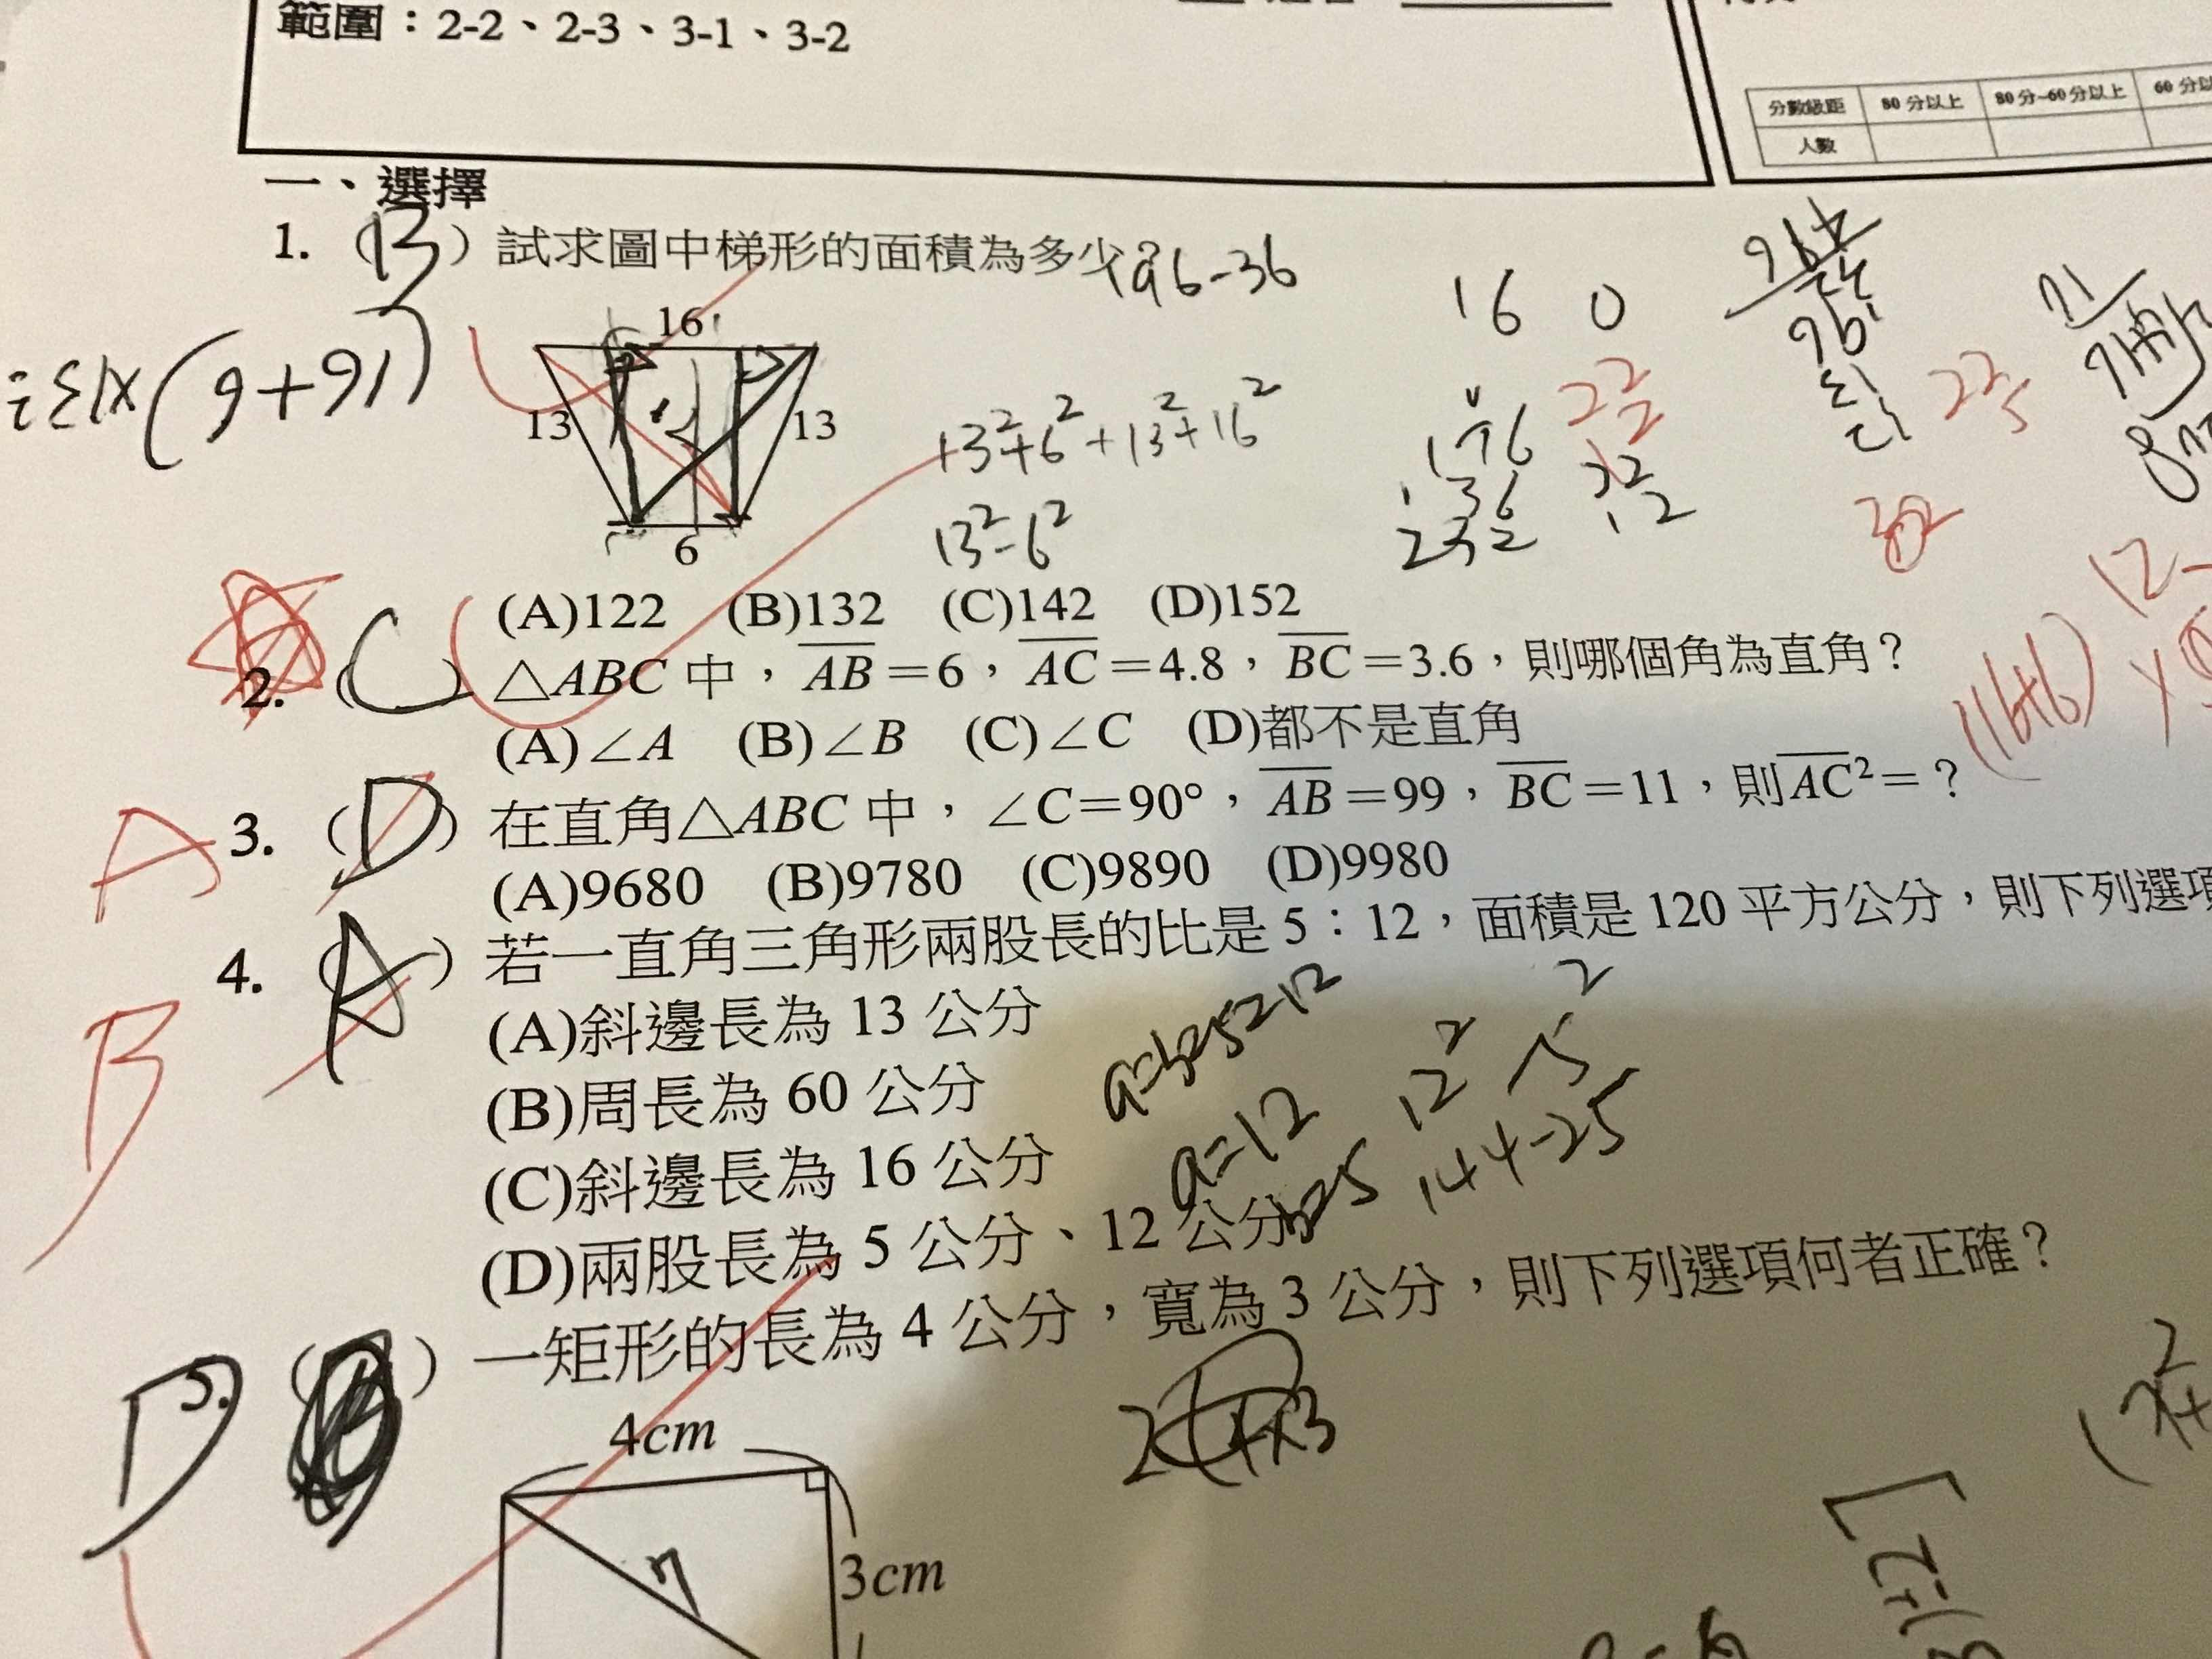 範圍：2-2、2-3、3-1、3-2
分數級距 80 分以上 80 分~60 分以上 60 分以
人數
一、選擇
1. (B) 試求圖中梯形的面積為多少？
196-36
16
13
13
6
(16+6)×13÷
13²+6²+13²+16²
13²-6²
16 0
176
36
232
22
2
22
12
(A)122 (B)132 (C)142 (D)152
2. (C) △ABC 中，AB＝6，AC＝4.8，BC＝3.6，則哪個角為直角？
(A)∠A (B)∠B (C)∠C (D)都不是直角
A 3. (D) 在直角△ABC 中，∠C＝90°，AB＝99，BC＝11，則AC²＝？
(A)9680 (B)9780 (C)9890 (D)9980
B 4. (A) 若一直角三角形兩股長的比是 5：12，面積是 120 平方公分，則下列選項
(A)斜邊長為 13 公分
(B)周長為 60 公分
(C)斜邊長為 16 公分
(D)兩股長為 5 公分、12 公分
a=12
12² 5²
144-25
D 5. ( ) 一矩形的長為 4 公分，寬為 3 公分，則下列選項何者正確？
4cm
3cm
(16+6)